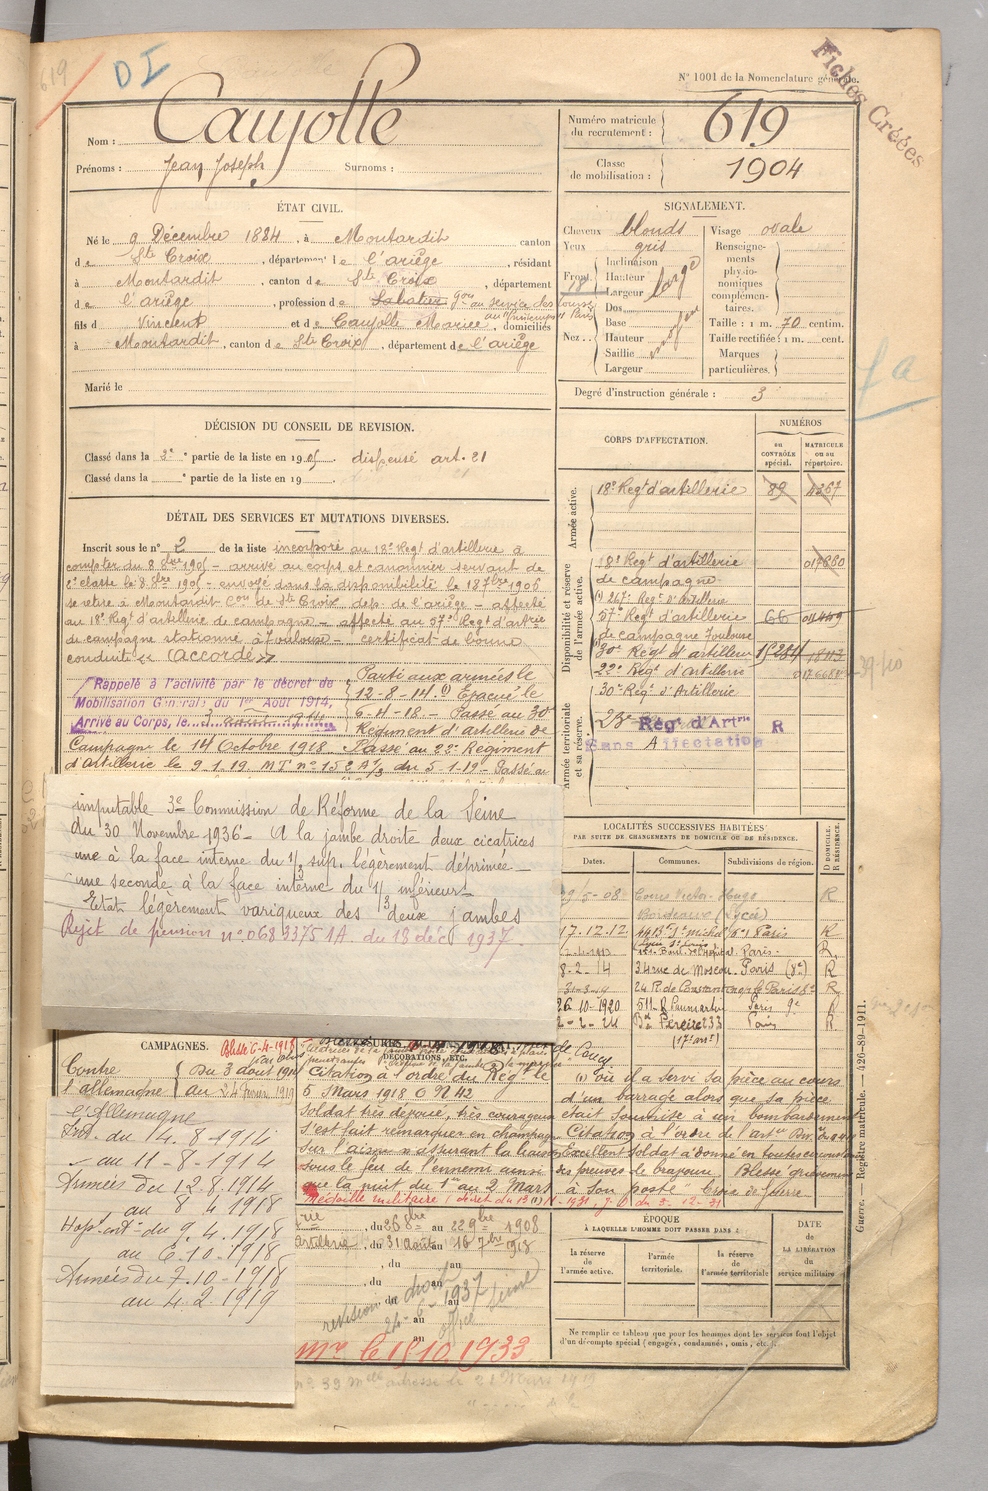 619
DI
Fiches Créées
N° 1001 de la Nomenclature générale.
Nom : Caujolle
Prénoms : Jean Joseph Surnoms :
Numéro matricule du recrutement : 619
Classe de mobilisation : 1904
ÉTAT CIVIL.
Né le 9 Décembre 1884, à Montardit canton
de Ste Croix, département de l'ariège, résidant
à Montardit, canton de Ste Croix, département
de l'ariège, profession de Sabatier gon au service des
au Printemps à Paris
fils de Vincent et de Caujolle Marie, domiciliés
à Montardit, canton de Ste Croix, département de l'ariège
Marié le
SIGNALEMENT.
Cheveux blonds
Yeux gris
Front Inclinaison
Hauteur
Largeur
large
Nez Dos
Base
Hauteur
Saillie
Largeur
moyen
Visage ovale
Renseignements physionomiques complémentaires.
Taille : 1 m. 70 centim.
Taille rectifiée : 1 m. cent.
Marques particulières.
Degré d'instruction générale : 3
DÉCISION DU CONSEIL DE REVISION.
Classé dans la 3e partie de la liste en 1905. dispensé art. 21
Classé dans la partie de la liste en 19
DÉTAIL DES SERVICES ET MUTATIONS DIVERSES.
Inscrit sous le n° 2 de la liste incorporé au 18e Regt d'artillerie à
compter du 8 8bre 1905 - arrivé au corps et canonnier servant de
2e classe le 8 8bre 1905 - envoyé dans la disponibilité le 18 7bre 1906
se retire à Montardit Con de Ste Croix dep. de l'ariège - affecté
au 18e Regt d'artillerie de campagne - affecté au 57e Regt d'artrie
de campagne stationné à Toulouse - certificat de bonne
conduite « Accordé »
Rappelé à l'activité par le décret de
Mobilisation Générale du 1er Août 1914,
Arrivé au Corps, le 3 août 1914
Parti aux armées le
12-8-14. (1) Evacué le
6-4-18. - Passé au 30e
Régiment d'artillerie de
Campagne le 14 Octobre 1918 Passé au 22e Régiment
d'artillerie le 9.1.19. MT n° 152 A 1/3 du 5-1-19 - Passé au
imputable 3e Commission de Réforme de la Seine
du 30 Novembre 1936 - A la jambe droite deux cicatrices
une à la face interne du 1/3 sup. légèrement déprimée -
une seconde à la face interne du 1/3 inférieur -
Etat légèrement variqueux des deux jambes
Rejet de pension n° 0683375 1A. du 18 déc 1937.
CORPS D'AFFECTATION.
NUMÉROS
au CONTRÔLE spécial.
MATRICULE ou au répertoire.
Armée active.
18e Regt d'artillerie 89 4267
Disponibilité et réserve de l'armée active.
18e Regt d'artillerie
de campagne
(1) 247e Regt d'Artillerie
57e Regt d'artillerie 66
de campagne Toulouse
30e Regt d'artillerie
22e Regt d'artillerie
30e Reg. d'Artillerie
Armée territoriale et sa réserve.
23e Régt d'Artrie R
Sans Affectation
LOCALITÉS SUCCESSIVES HABITÉES
PAR SUITE DE CHANGEMENTS DE DOMICILE OU DE RÉSIDENCE.
Dates. Communes. Subdivisions de région. D DOMICILE. R RÉSIDENCE.
29-5-08 Cours Victor-Hugo R
Bordeaux (Lycée)
17.12.12 Bd St Michel Paris R
Paris R
8-2-14 34 rue de Moscou Paris (8e) R
24 R. de Constantinople Paris 8e R
26-10-1920 Paris 9e R
2-2-24 Bd Péreire 233 Paris R
(17e arrt)
Guerre. — Registre matricule. — 426-89-1911.
CAMPAGNES. Blessé 6-4-1918
Contre
l'allemagne
du 3 août 1914
au 24 février 1919
c/Allemagne
Int. du 14.8-1914
au 11-8-1914
Armées du 12.8.1914
au 8 4 1918
Hop. int. du 9.4.1918
au 6-10-1918
Armées du 7.10-1918
au 4.2.1919
DÉCORATIONS, ETC.
Citation à l'ordre du Régt le
5 Mars 1918 O N 42
Soldat très dévoué, très courageux
s'est fait remarquer en champagne
sur l'aisne n assurant la liaison
sous le feu de l'ennemi ainsi
que la nuit du 1er au 2 Mars
(1) où il a servi sa pièce au cours
d'un barrage alors que sa pièce
était soumise à un bombardement
Citation à l'ordre de l'arte Div.
Excellent soldat a donné en toutes circonstances
des preuves de bravoure, Blessé grièvement
à son poste" Croix de Guerre.
Médaille militaire
, du 26 8bre au 22 9bre 1908
, du 31 août au 16 7bre 1918
, du au
, du au
révision droit
24-6-1937 Seine
Mre le 15.10.1933
ÉPOQUE
À LAQUELLE L'HOMME DOIT PASSER DANS :
la réserve de l'armée active.
l'armée territoriale.
la réserve de l'armée territoriale
DATE DE LA LIBÉRATION du service militaire
Ne remplir ce tableau que pour les hommes dont les services font l'objet
d'un décompte spécial (engagés, condamnés, omis, etc.).